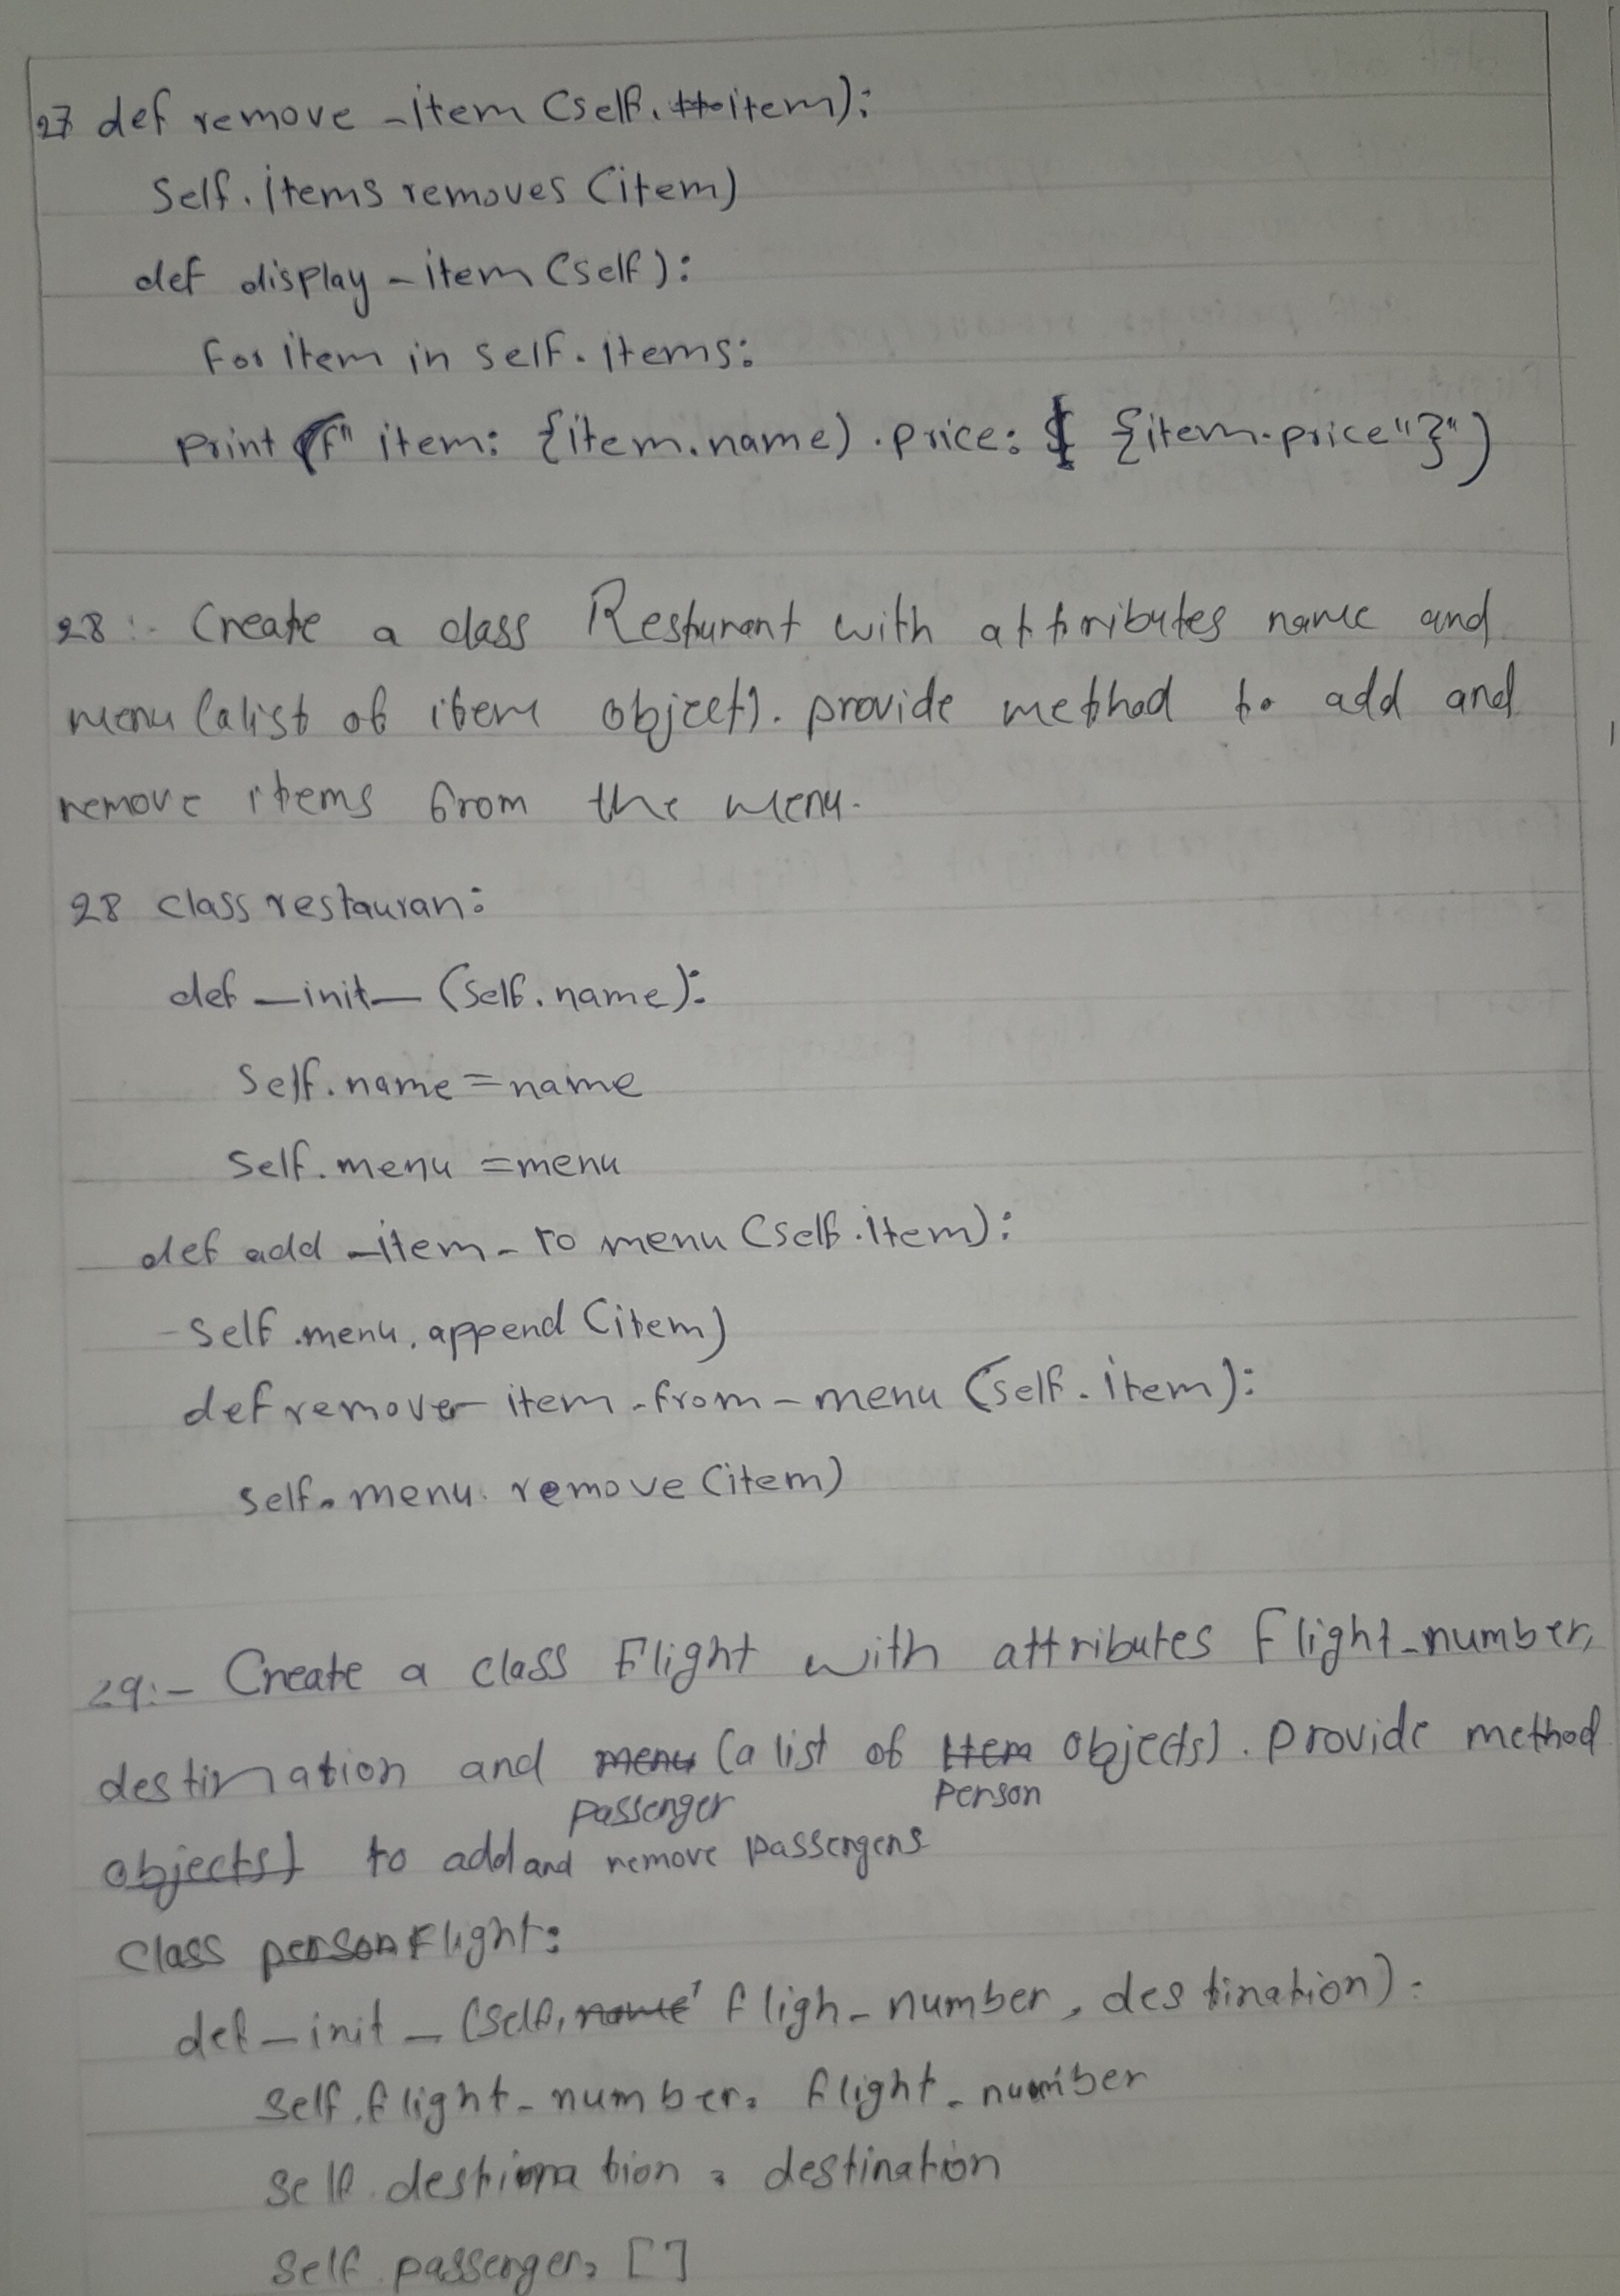 27 def remove -item (self. item):
Self. items removes (item)
def display - item (self):
for item in self. items:
print (f" item: {item.name) . price: $ {item.price"}")
28 :- Create a class Resturant with attributes name and
menu (alist of item object). provide method to add and
remove items from the menu.
28 class restauran:
def _init_ (self. name):
self. name = name
self. menu = menu
def add _item - to menu (self. item):
- self .menu. append (item)
def remover item - from - menu (self. item):
self. menu. remove (item)
29:- Create a class Flight with attributes flight_number,
destination and menu (a list of Item objects). provide method
passenger person
objects) to add and remove passengers
class person Flight:
def _ init _ (self, name fligh_ number, destination):
self. flight - number = flight - number
self. destination = destination
self. passenger = []